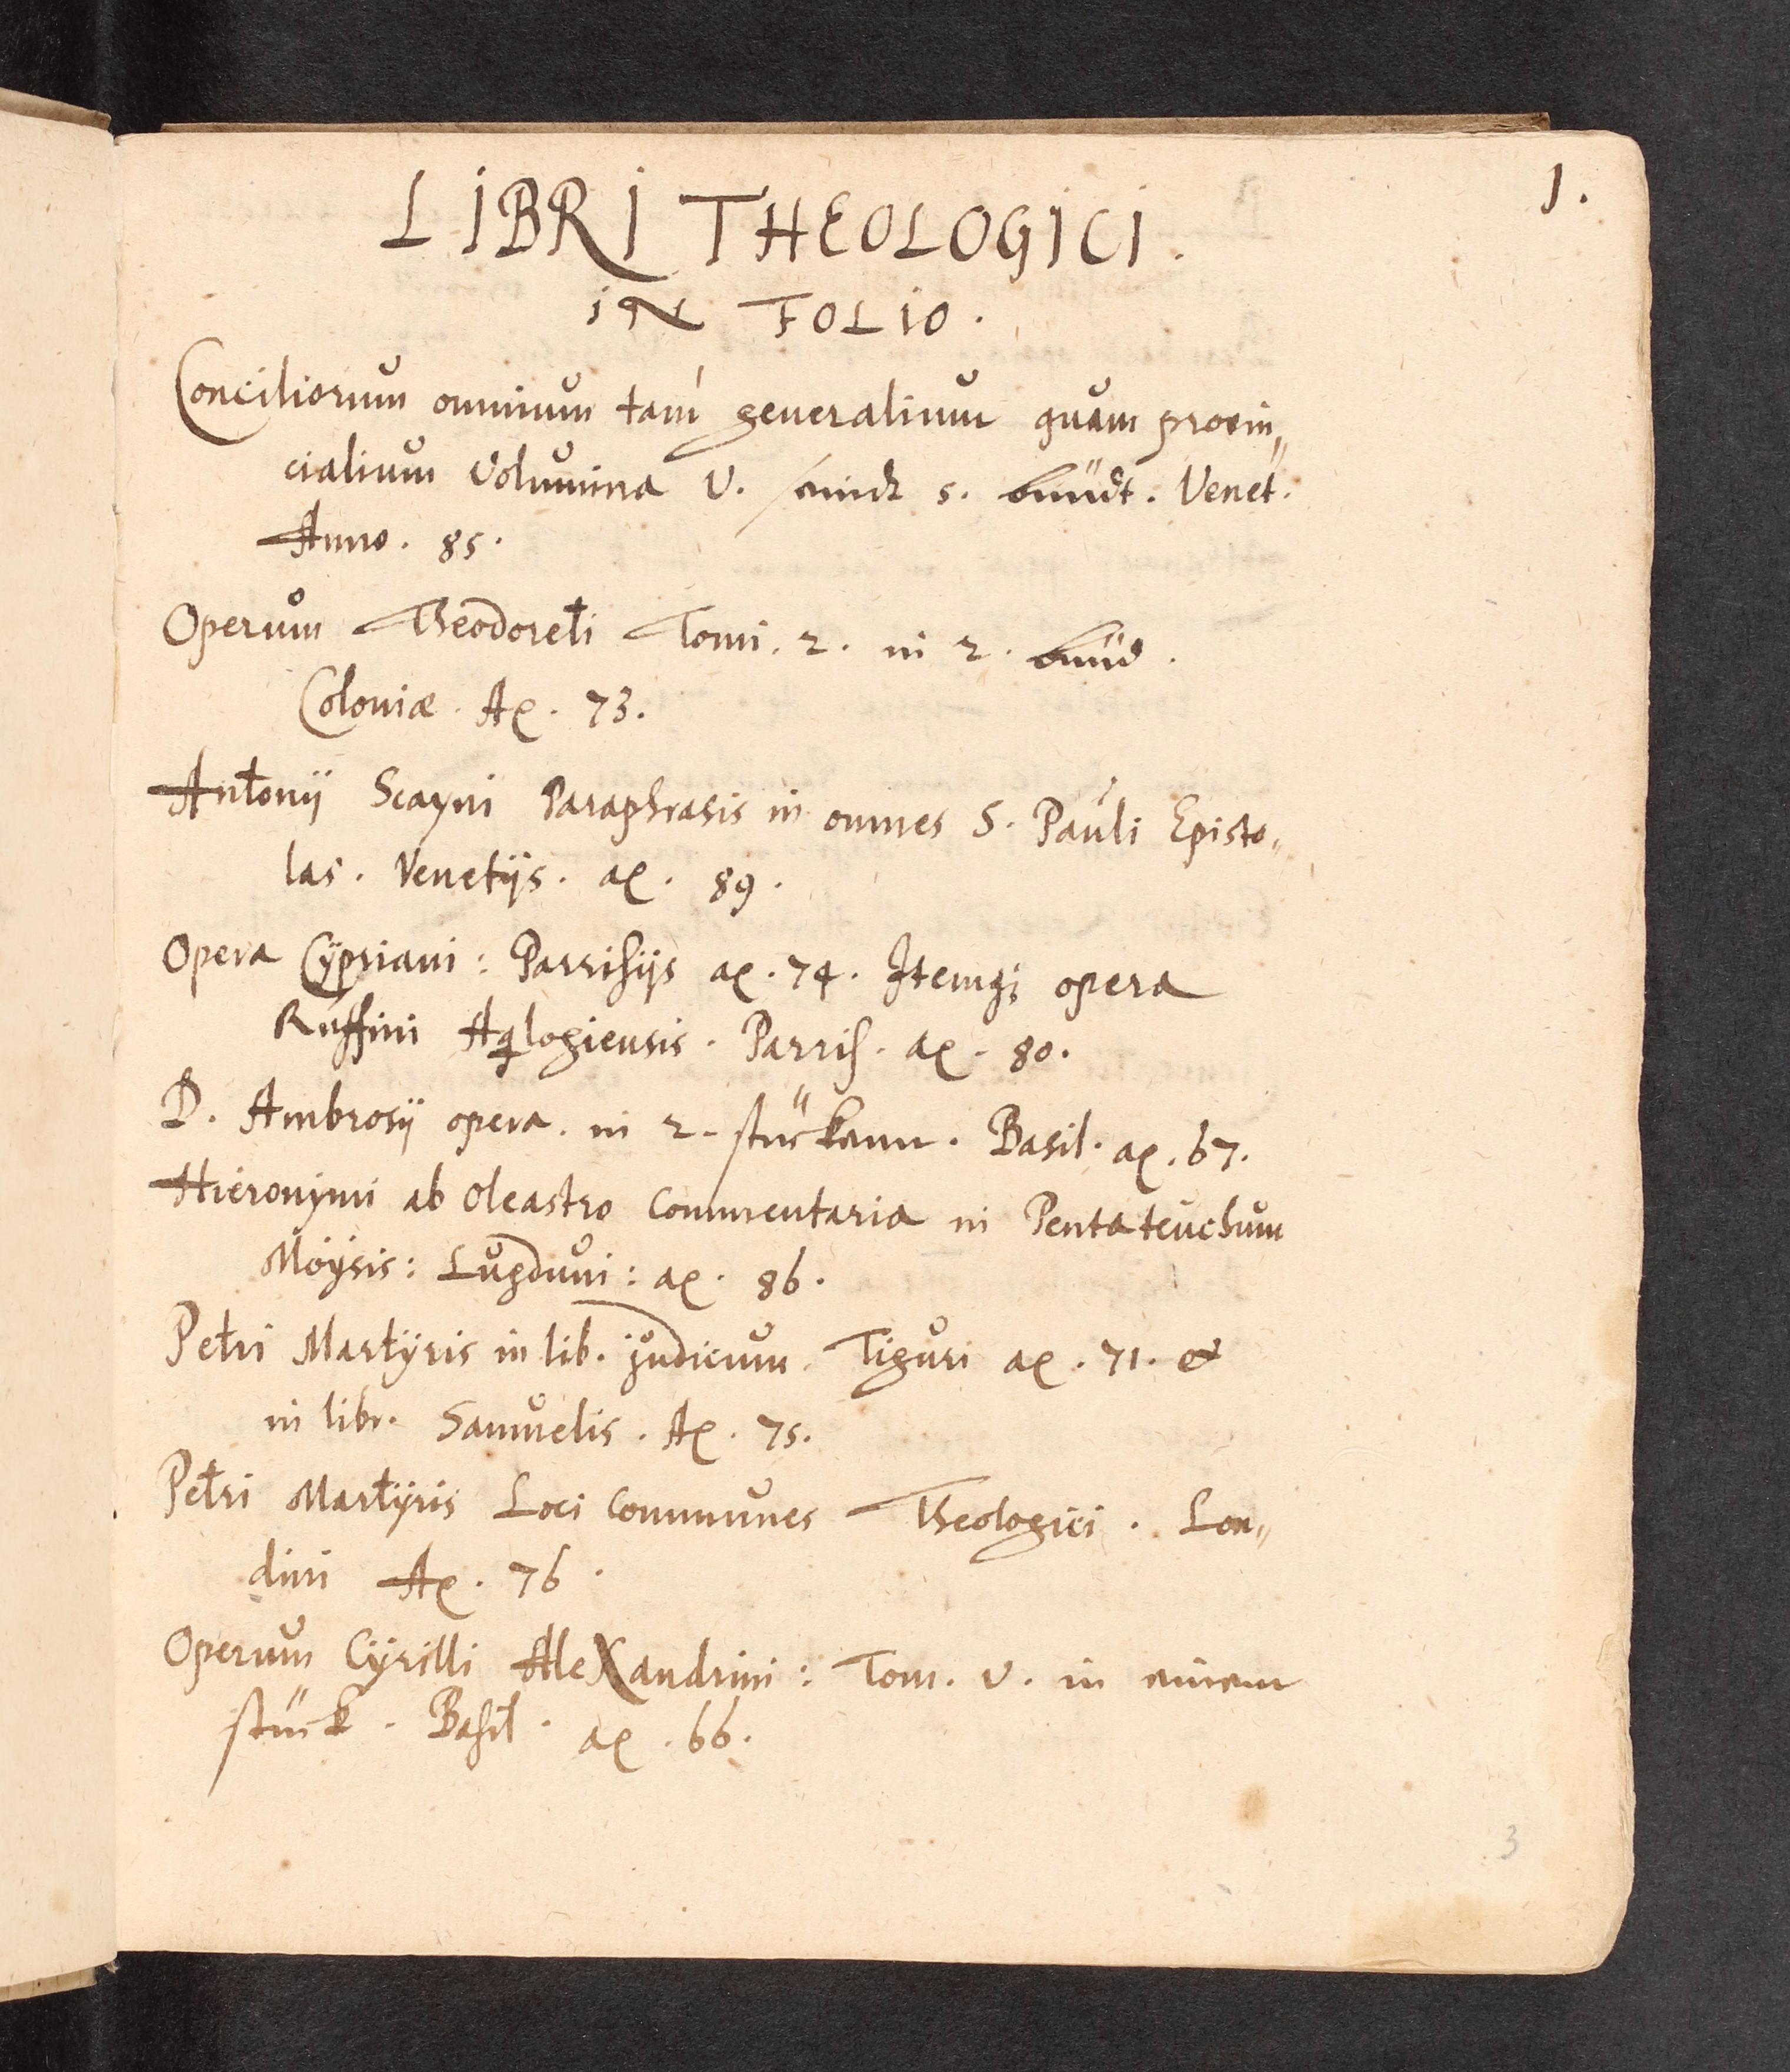 1.
LIBRI THEOLOGICI.
IN FOLIO.
Conciliorum omnium tam generalium quam provin„
cialium Volumina V. seindt 5. bündt. Venet.
Anno. 85.
Operum Theodoreti Tomi. 2. in 2. bünd.
Coloniæ. Aº. 73.
Antonij Scayni Paraphrasis in omnes S. Pauli Episto„
las. Venetijs. aº. 89.
Opera Cypriani: Parrisijs aº. 74. Itemq; opera
Ruffini Aqlogiensis. Parris. aº. 80.
D. Ambrosij opera. in 2. stückenn. Basil. aº. 67.
Hieronymi ab Oleastro Commentaria in Pentateuchum
Moysis: Lugduni: aº. 86.
Petri Martyris in lib. judicum. Tiguri aº. 71. et
in libr. Samuelis. Aº. 75.
Petri Martyris Loci Communes Theologici. Lon„
dini Aº. 76.
Operum Cyrilli AleXandrini: Tom. V. in einem
stück. Basil. aº. 66.
3